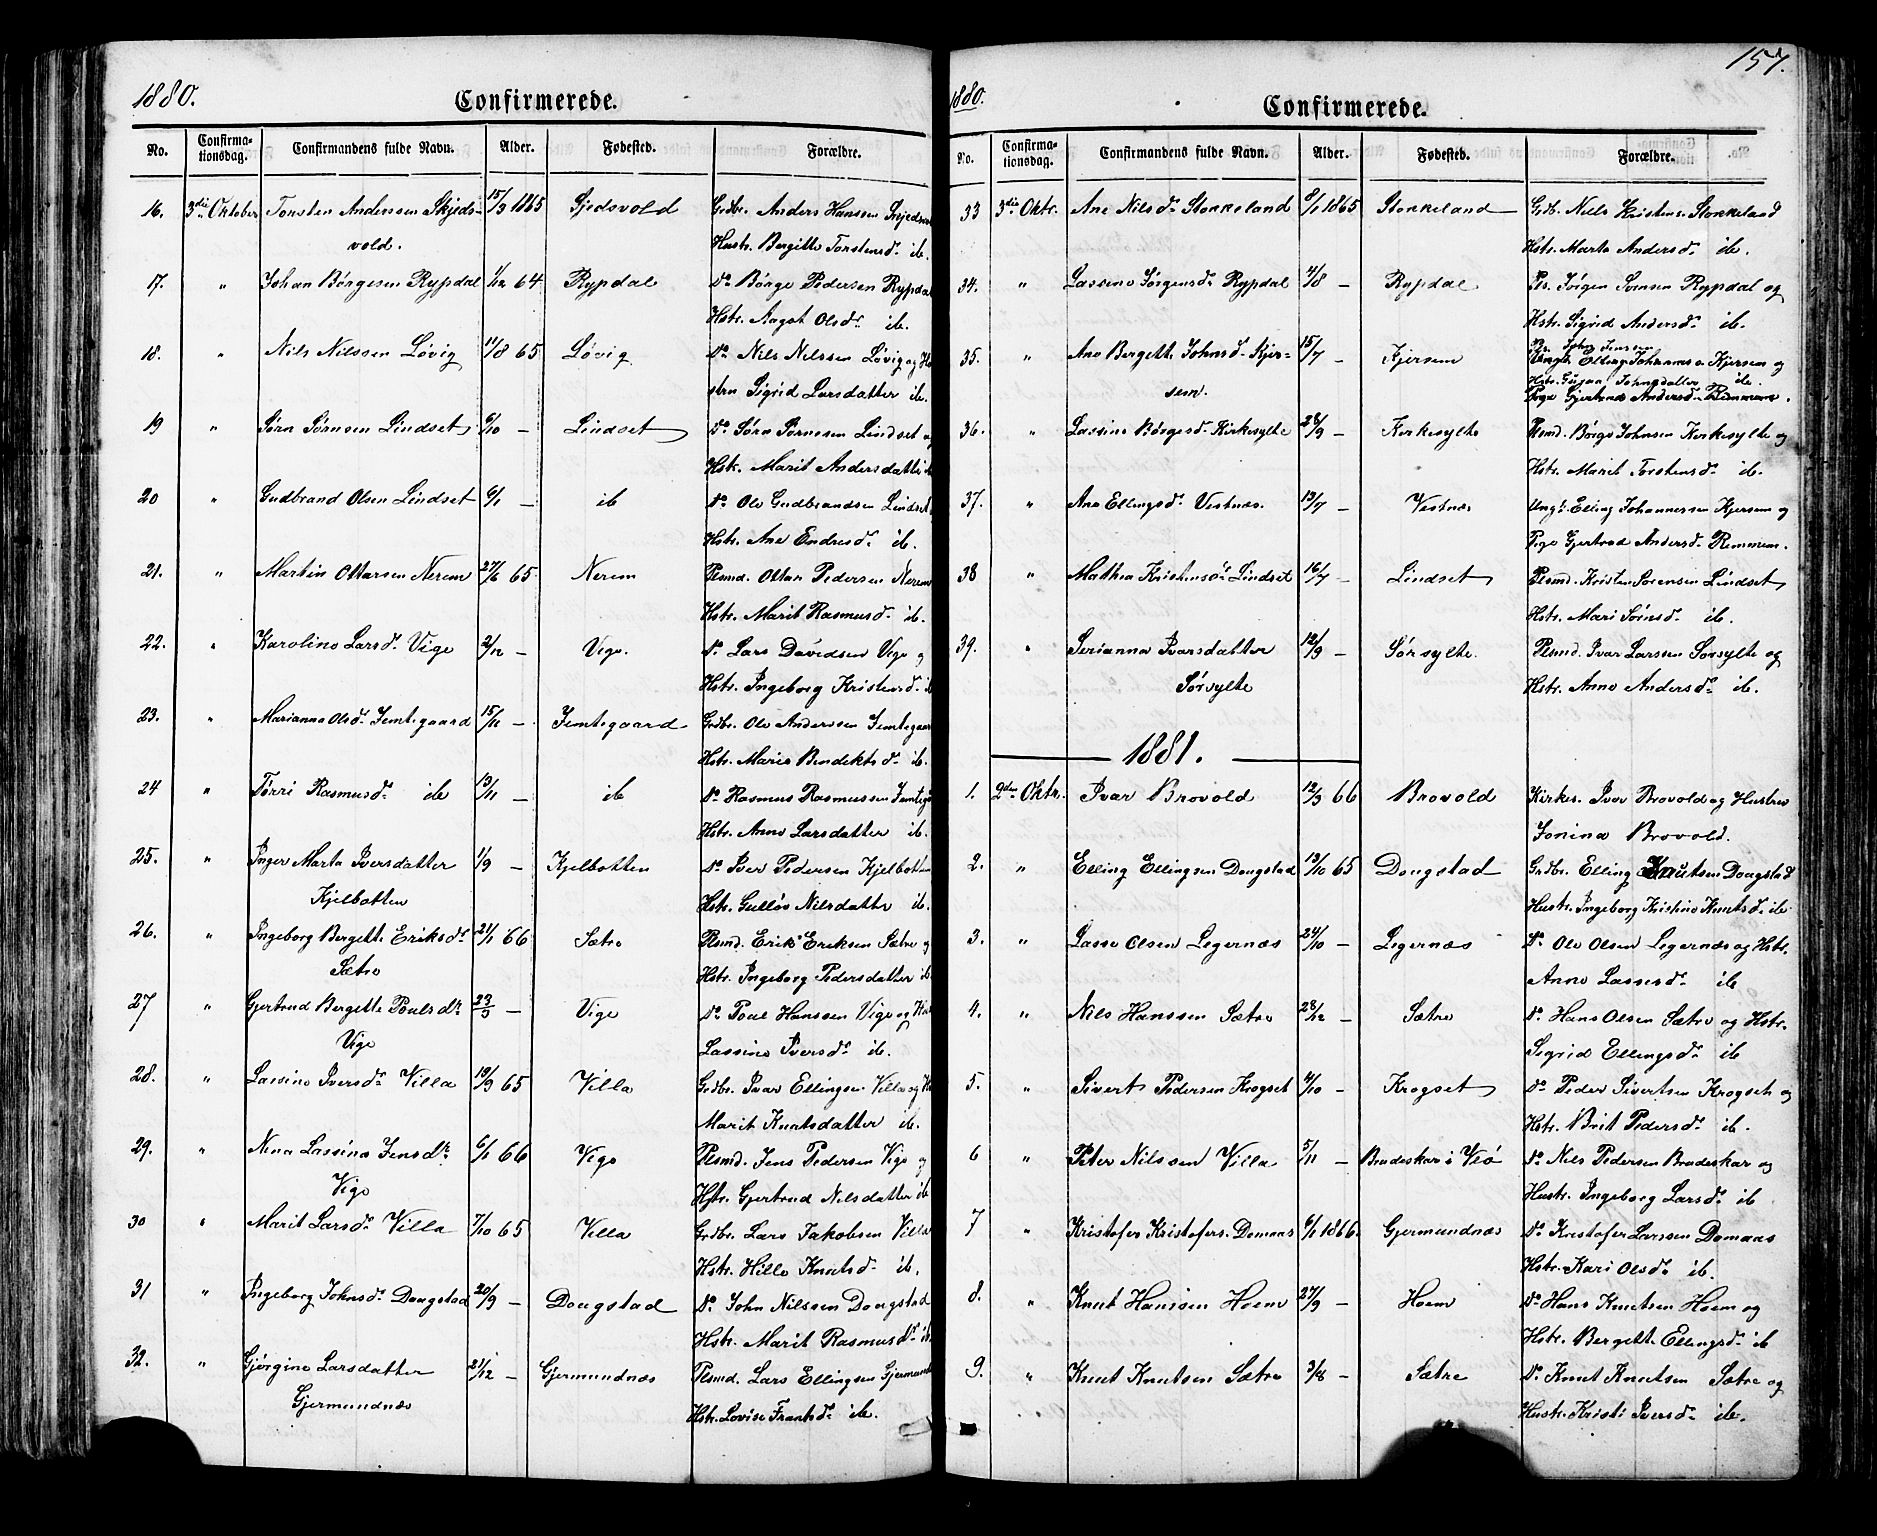 1880.
Confirmerede.
No. Confirma-tionsdag. Confirmandens fulde Navn. Alder. Fødested. Forældre.
16. 3die Oktober Torsten Andersen Skjeds- 15/3 1865 Sjedsvold Grdbr. Anders Hanssen
vold. Hustr. Bergitte Torstensd. ib.
17. " Johan Børgesen Rypdal 1/12 64 Rypdal Do Børge Pedersen Rypdal
Hstr. Aagot Olsdr ib.
18. " Nils Nilssen Løvig 11/8 65 Løvig Do Nils Nilssen Løvig og
stru Sigrid Larsdatter ib.
19 " Sørn Sørnsen Lindset 6/10 — Lindset Do Sørn Sørnsen Lindset og
Hstr. Marit Andersdatter
20 " Gudbrand Olsen Lindset 6/1 — ib Do Ole Gudbrandsen Lindset
Hstr. Ane Endresd. ib.
21. " Martin Ottarsen Nerem 27/6 65 Nerem Plsmd. Ottar Pedersen Nerem
Hstr. Marit Rasmusd. ib.
22. " Karoline Larsd. Vige 2/12 — Vige. Do Lars Davidsen Vige og
Hstr. Ingeborg Kristensd. ib
23. " Marianna Olsd. Jemtegaard 15/11 — Jemtegaard Grdbr. Ole Andersen Jemtegaard
Hstr. Marie Bendiktsd. ib.
24 " Tørri Rasmusd. ib 13/11 — ib Do Rasmus Rasmussen
Hstr. Anne Larsdatter ib.
25. " Inger Marta Iversdatter 1/9 — Kjelbotten Do Iver Pedersen Kjelbotten
Kjelbotten Hstr. Gulløv Nilsdatter ib.
26. " Ingeborg Bergette Eriksdr 21/1 66 Sætre Plsmd. Erik Eriksen Sætre og
Sætre Hstr. Ingeborg Pedersdatter ib
27 " Gjertrud Bergette Poulsdr 23/3 — Vige Do Poul Hanssen Vige og
Vige Lassine Iversd. ib.
28. " Lassine Iversd. Villa 19/9 65 Villa Grdbr. Ivar Ellingsen Villa og
Marit Knutsdatter ib.
29. " Nina Lassine Jensdr 6/1 66 Vige Plsmd. Jens Pedersen Vige og
Vige Hstr. Gjertrud Nilsdatter ib
30 " Marit Larsd. Villa 7/10 65 Villa Grdbr. Lars Jakobsen Villa
Hstr. Hille Knutsd. ib.
31 " Ingeborg Johnsd. Dougstad 20/9 — Dougstad Do John Nilssen Dougstad
Hstr. Marit Rasmusd. ib
32. " Gjørgine Larsdatter 21/12 — Gjermundnæs Plsmd. Lars Ellingsen
Gjermundnæs Hstr. Lovise Frantsd. ib.
157.
1880.
Confirmerede.
No. Confirma-tionsdag. Confirmandens fulde Navn. Alder. Fødested. Forældre.
33 3die Oktr. Ane Nilsd. Stokkeland 8/1 1865 Stokkeland Grdb. Niels Kristens. Stokkeland
Hstr. Marta Andersd. ib.
34. " Lassine Jørgensd. Rypdal 4/8 — Rypdal Pls. Jørgen Svensen Rypdal og
Hstr. Sigrid Andersd. ib.
35. " Ane Bergette Johnsd. Kjer- 15/7 — Kjersem Pls. John Jenssen
sem. Ungk. Elling Johannes s. Kjersem og
Hstr. Johnsdatter ib.
Pige Gjertrud Andersd. Remmem.
36. " Lassine Børgesd. Kirkesylte 28/9 — Kirkesylte Plsmd. Børge Johnsen Kirkesylte og
Hstr. Marit Torstensd. ib.
37. " Ane Ellingsd. Vestnæs. 13/7 — Vestnæs Ungk. Elling Johannessen Kjersem og
Pige Gjertrud Andersd. Remmem.
38 " Mathea Kristensd. Lindset 16/7 — Lindset Plsmd. Kristen Sørensen Lindset
Hstr. Mari Sørnsd. ib.
39. " Serianna Ivarsdatter 12/9 — Sørsylte. Plsmd. Ivar Larssen Sørsylte og
Sørsylte Hstr. Anne Andersd. ib.
1881.
1. 2den Oktr. Ivar Brovold 12/3 66 Brovold Kirkes. Ivar Brovold og Hustru
Jonina Brovold.
2. " Elling Ellingsen Dougstad 13/10 65 Dougstad Grdbr. Elling Knutsen Dougstad
Hustr. Ingeborg Kristine Knutsd. ib
3. " Lasse Olsen Legernæs 24/10 — Legernæs Do Ole Olsen Legernæs og Hstr.
Anne Lassesd. ib
4. " Nils Hanssen Sætre 28/12 — Sætre Do Hans Olsen Sætre og Hstr.
Sigrid Ellingsd. ib
5. " Sivert Pedersen Krogset 4/10 — Krogset Do Peder Sivertsen Krogset og
Hstr. Brit Pedersd. ib.
6 " Peter Nilssen Villa 5/11 — Brudeskar i Veø Do Nils Pedersen Brudeskar og
Hustr. Ingeborg Larsd. ib
7 " Kristofer Kristofers. Domaas 6/1 1866. Gjermundnæs Do Kristofer Larssen Domaas
Hstr. Kari Olsd. ib.
8. " Knut Hanssen Hoem 27/9 — Hoem Do Hans Knutsen Hoem og
Hstr. Bergette Ellingsd. ib
9. " Knut Knutsen Sætre 3/8 — Sætre Do Knut Knutsen Sætre og
Hustr. Kristi Iversd. ib.